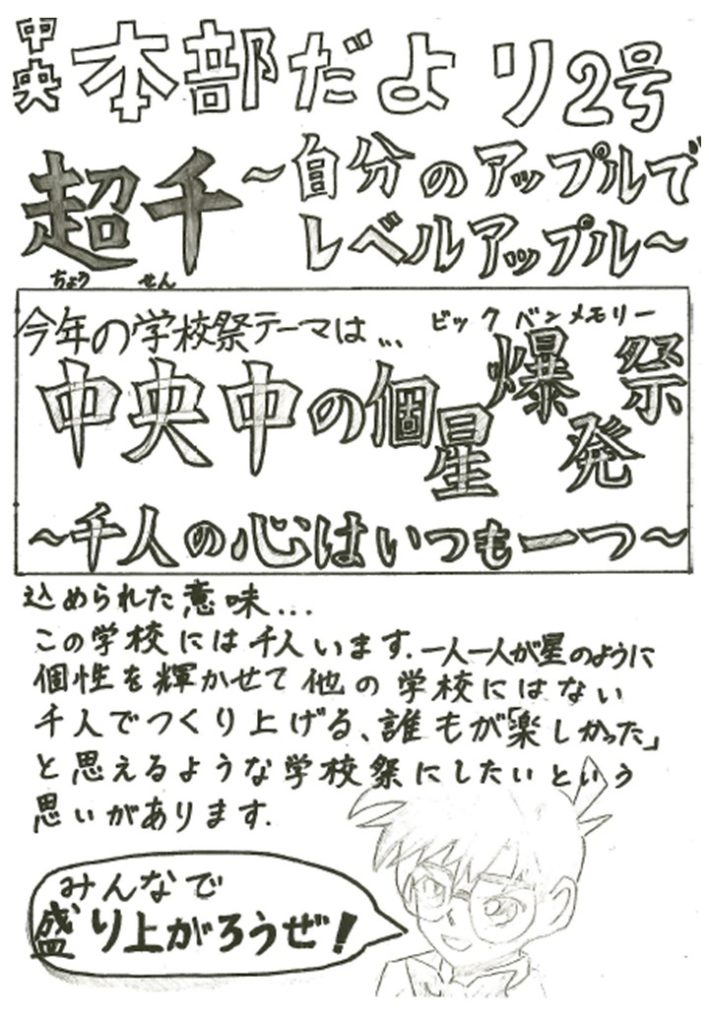 中央 本部だより2号
超千 ～自分のアップルで
ちょう せん
レベルアップル～
今年の学校祭テーマは...
ビック バン メモリー
中央中の個星爆発祭
～千人の心はいつも一つ～
込められた意味...
この学校には千人います.一人一人が星のように
個性を輝かせて他の学校にはない
千人でつくり上げる、誰もが「楽しかった」
と思えるような学校祭にしたいという
思いがあります.
みんなで
盛り上がろうぜ!